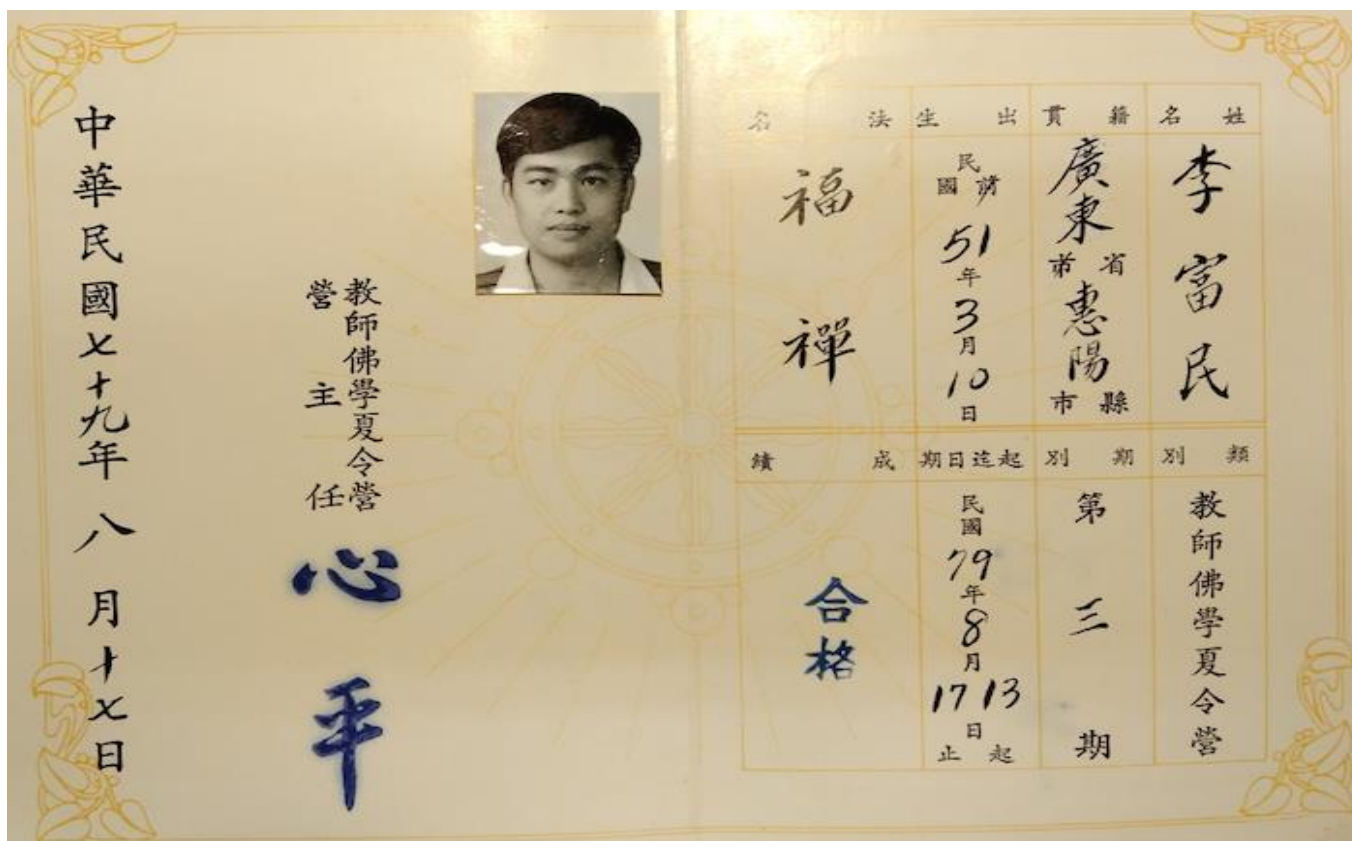 姓名
李富民
籍貫
廣東省市惠陽縣市
出生
民國前51年3月10日
法名
福禪
類別
教師佛學夏令營
期別
第三期
起迄日期
民國79年8月13 17日起止
成績
合格
教師佛學夏令營
營主任
心平
中華民國七十九年八月十七日